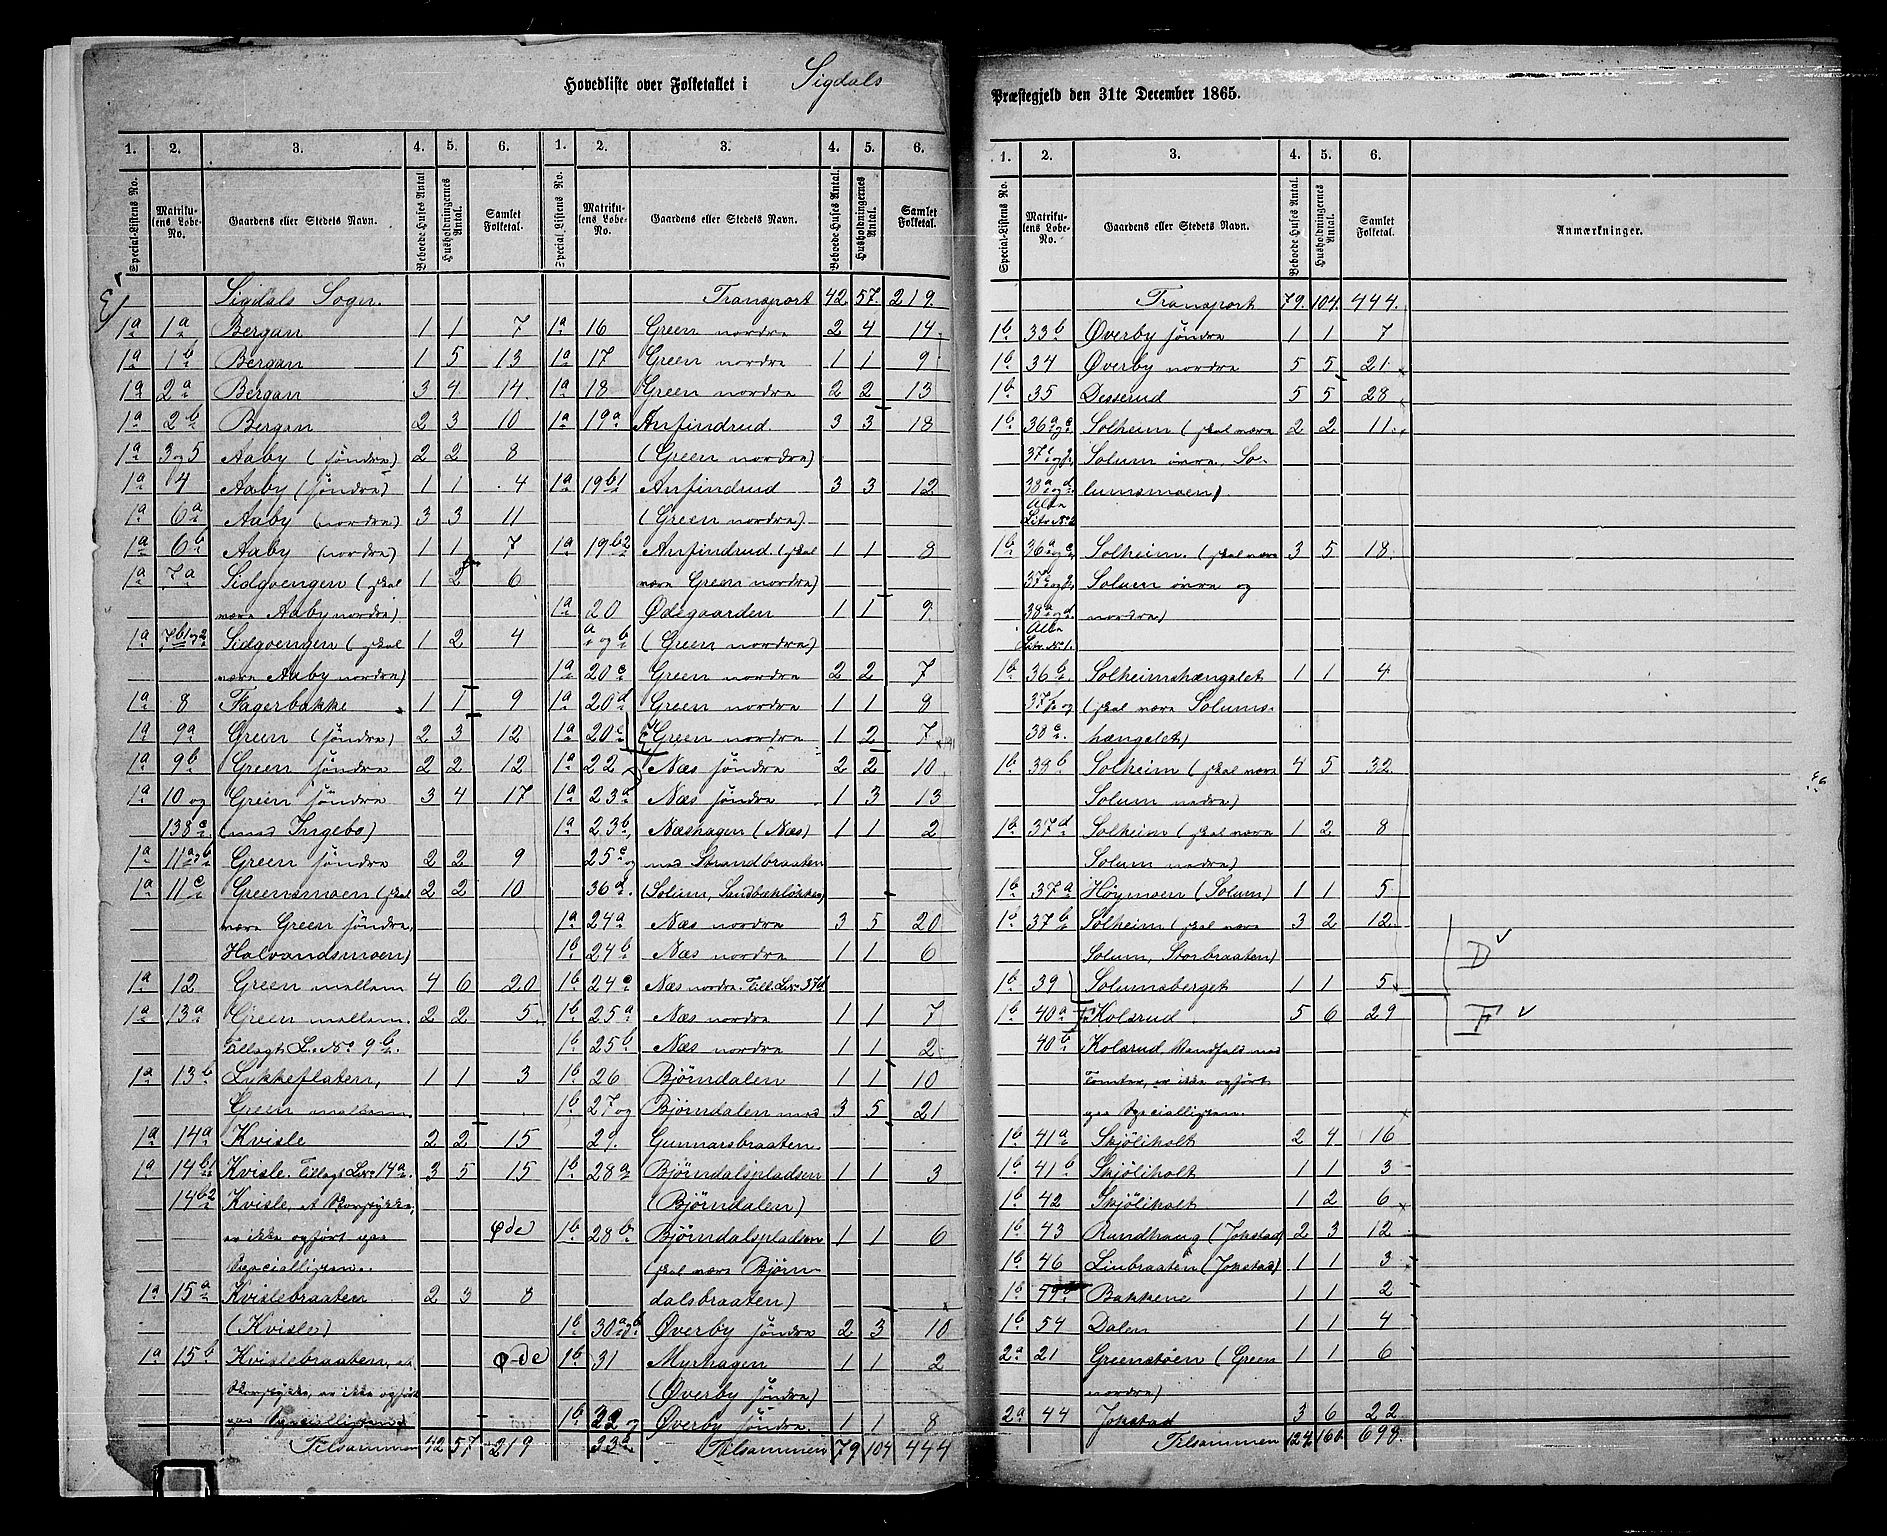 Hovedliste over Folketallet i Sigdals
Præstegjeld den 31te December 1865.
1. 2. 3. 4. 5. 6.
Special-Listens No. Matriku-lens Løbe-No. Gaardens eller Stedets Navn. Beboede Huses Antal Husholdningernes Antal. Samlet Folketal.
Sigdals Sogn.
1a 1a Bergan 1 1 7
1a 1b Bergan 1 5 13
1a 2a Bergan 3 4 14
1a 2b Bergan 2 3 10
1a 3 og 5 Aaby (søndre) 2 2 8
1a 4 Aaby (søndre) 1 1 4
1a 6a Aaby (nordre) 3 3 11
1a 6b Aaby (nordre) 1 1 7
1a 7a Lidgvengen (skal 1 2 6
være Aaby nordre)
1a 7b1 og 2 Lidgvengen (skal 1 2 4
være Aaby nordre)
1a 8 Fagerbakke 1 1 9
1a 9a Green (søndre) 2 3 12
1a 9b Green søndre 2 2 12
1a 10 og Green søndre 3 4 17
138c (med Ingebo)
1a 11a og b Green søndre 2 2 9
1a 11c Greensmoen (skal 2 2 10
være Green søndre,
Halvandsmoen)
1a 12 Green mellem 4 6 20
1a 13a Green mellem 2 2 5
Tillagt L. No 9b.
1a 13b Lykkeflaten, 1 1 3
Green mellem
1a 14a Kvisle 2 2 15
1a 14b1 Kvisle. Tillagt Lno 14a. 3 5 15
14b2 Kvisle, et Skovstykke,
er ikke opført paa øde
Speciallisten.
1a 15a Kvislebraaten 2 3 8
(Kvisle)
1a 15b Kvislebraaten, et øde
Skovstykke, er ikke opført
paa Speciallisten
Tilsammen 42 57 219
1. 2. 3. 4. 5. 6.
Special-Listens No. Matriku-lens Løbe-No. Gaardens eller Stedets Navn. Beboede Huses Antal Husholdningernes Antal. Samlet Folketal.
Transport 42 57. 219.
1a 16 Green nordre 2 4 14
1a 17 Green nordre 1 1 9
1a 18 Green nordre 2 2 13
1a 19a Anfindrud. 3 3 18
(Green nordre)
1a 19b1 Anfindrud 3 3 12
(Green nordre)
1a 19b2 Anfindrud. (skal 1 1 8
være Green nordre)
1a 20 Ødegaarden 1 1 9
a og b (Green nordre)
1a 20c Green nordre 2 2 7
1a 20d Green nordre 1 1 8
1a 20e Green nordre 1 2 7
1a 22 Næs søndre 2 2 10
1a 23a Næs søndre 1 3 13
1a 23b, Næshagen (Næs) 1 1 2
25c og med Strandbraaten
36d. (Solum, Sandbækløkken)
1a 24a Næs nordre 3 5 20
1b 24b Næs nordre 1 1 6
1b 24c Næs nordre. Till. Lno 37d
1b 25a Næs nordre 1 1 7
1b 25b Næs nordre 1 1 2
1b 26 Bjørndalen 1 1 10
1b 27 og Bjørndalen med 3 5 21
29. Gunnarsbraaten
1b 28a Bjørndalspladsen 1 1 3
(Bjørndalen)
1b 28b Bjørndalspladsen 1 1 6
(skal være Bjørn-
dalsbraaten)
1b 30a og b Øverby søndre 2 3 10
1b 31 Myrhagen 1 1 2
(Øverby søndre)
1b 32 og Øverby søndre 1 1 8
33a Tilsammen 79 104 444
1. 2. 3. 4. 5. 6.
Special-Listens No. Matriku-lens Løbe-No. Gaardens eller Stedets Navn. Beboede Huses Antal. Husholdningernes Antal. Samlet Folketal. Anmærkninger.
Transport 79. 104 444.
1b 33b Øverby søndre 1 1 7
1b 34 Øverby nordre 5 5 21
1b 35 Desserud 5 5 28
1b 36a og c Solheim (skal være 2 2 11
37c og Solum øvre, So-
38a og d lumsmoen)
1b 36a og c Solheim. (skal være 3 5 18
37c og Solum øvre og
38a og d nordre)
1b 36b. Solheimshængslet 1 1 4
37 og (skal være Solums-
38c. hængslet)
1b 38b Solheim (skal være 4 5 32
Solum nedre)
1b 37d Solheim (skal være 1 2 8
Solum nedre)
1b 37a Høymoen (Solum) 1 1 5
1b 37b Solheim (skal være 3 2 12
Solum, Storbraaten)
D
1b 39 Solumsberget 1 1 5
1b 40a Kolsrud. 5 6 29
F
40b Kolsrud, Vandfald med
Tomter, er ikke opført
paa Speciallisten.
1b 41a Skjøliholt 2 4 16
1b 41b Skjøliholt 1 1 3
1b 42 Skjøliholt 1 2 6
1b 43 Rundhaug (Jokstad) 2 3 12
1b 46 Linbraaten (Jokstad) 1 1 3
1b Bakkene 1 1 2
1b 54 Dalen 1 1 4
2a 21 Greenstøen (Green 1 1 6
nordre)
2a 44 Jokstad 3 6 22
Tilsammen 124 166 698.